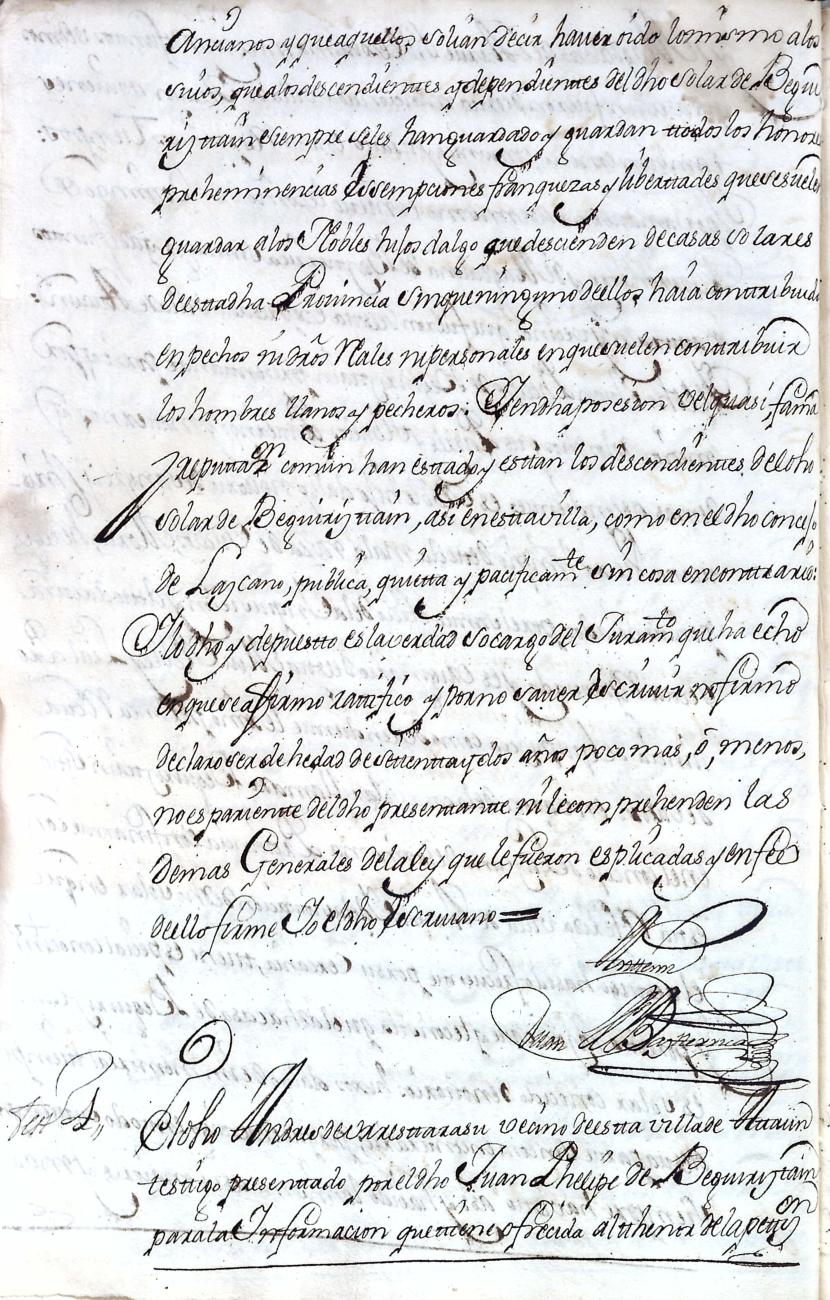 Ancianos y que aquellos solian decir haver oido lo mismo a los
suios, que a los descendientes y dependientes del dho solar de Begui
riztiain siempre se les han guardado y guardan ttodos los honores
preheminencias Essempciones franquezas y liberttades que se suelen
guardar a los Nobles hijos dalgo que descienden de casas solares
de estta dha Provincia sin que ninguno de ellos haia conttribuido
en pechos ni drôs Rales ni personales en que suelen conttribuir
los hombres llanos y pecheros: Yen dha posesion velquasi, fama
y reputtaon comun han esttado y esttan los descendienttes del dho
solar de Beguiriztiain, asi en estta villa, como en el dho concejo
de Lazcano, publica, quietta y pacificamte sin cosa en conttrario:
Y lo dho y depuestto es la verdad so cargo del Juramto que ha echo
en que se afirmo rattifico y por no saver Escrivir no firmo
declaro ser de hedad de settentta y dos años poco mas, o, menos,
no es parientte del dho presenttantte ni le comprehenden las
demas Generales de la ley que le fueron esplicadas y en fee
de ello firme Yo el dho Escrivano =
Anttemi
Juan
tesº 4,
El dho Andres de Urresttarasu vecino de estta villa de Attaun
testigo presenttado por el dho Juan Phelipe de Beguiriztain
para la Informacion que ttiene ofrecida al tthenor de la pettion